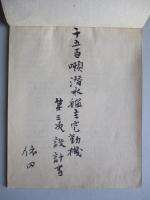 千五百噸潜水艦主発動機
第三次設計書
依田